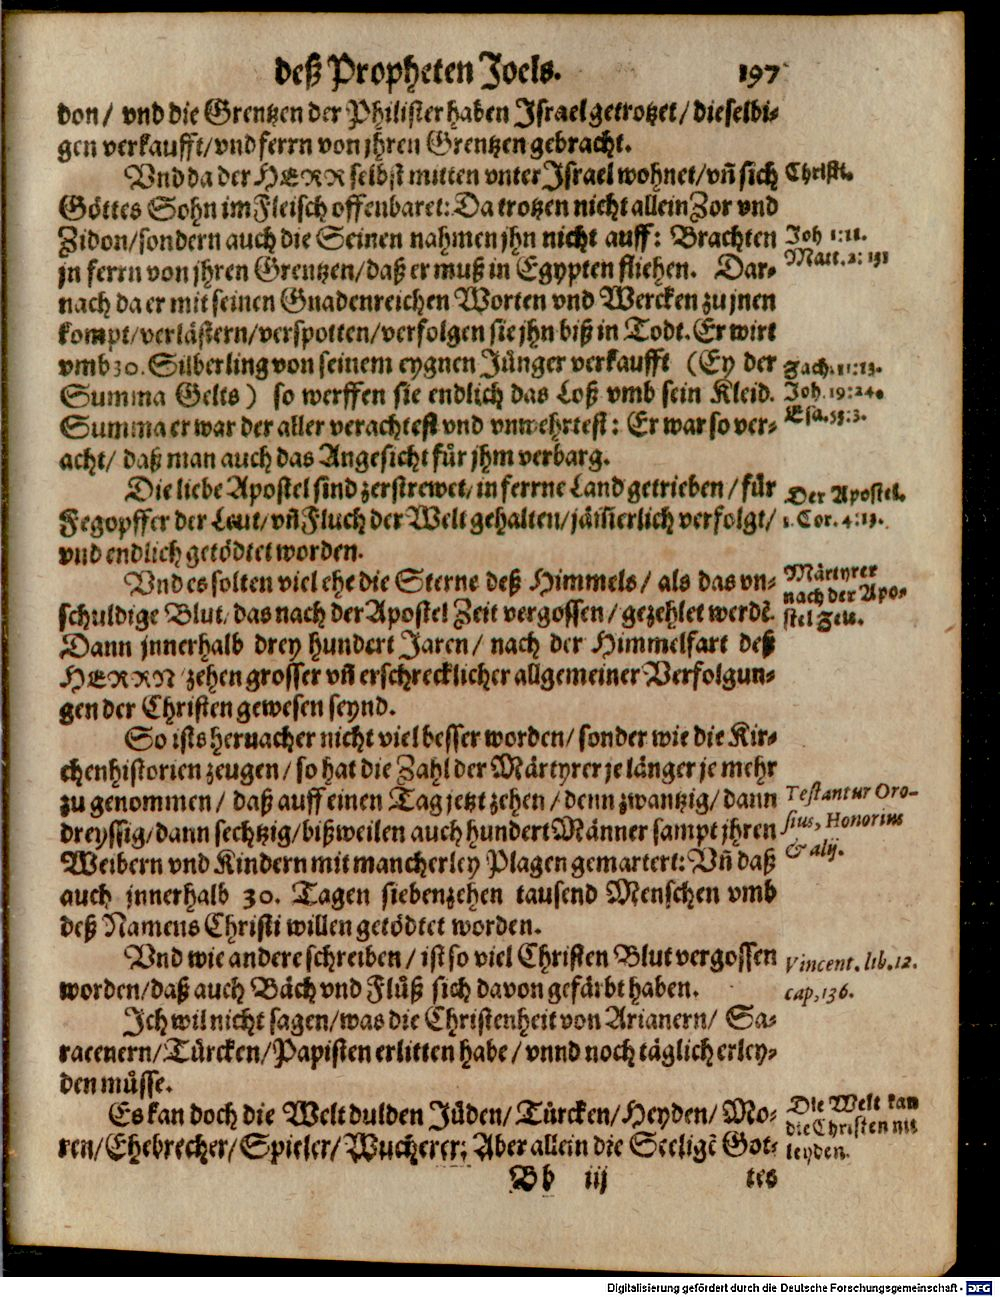 deß Propheten Joels. 197
don/ vnd die Grentzen der Philister haben Israel getrotzet/ dieselbi-
gen verkaufft/ vnd ferrn von jhren Grentzen gebracht.
Vnd da der HERR selbst mitten vnter Israel wohnet/ vñ sich
Christi.
Göttes Sohn im Fleisch offenbaret: Da trotzen nicht allein Zor vnd
Zidon/ sondern auch die Seinen nahmen jhn nicht auff: Brachten
Joh 1:11.
jn ferrn von jhren Grentzen/ daß er muß in Egypten fliehen. Dar-
Matt. 2:
nach da er mit seinen Gnadenreichen Worten vnd Wercken zu jnen
kompt/ verlästern/ verspotten/ verfolgen sie jhn biß in Todt. Er wirt
vmb 30. Silberling von seinem eygnen Jünger verkaufft (Ey der
Zach. 11:13.
Summa Gelts) so werffen sie endlich das Loß vmb sein Kleid.
Joh. 19:24.
Summa er war der aller verachtest vnd vnwehrtest: Er war so ver-
Esa. 53:3.
acht/ daß man auch das Angesicht für jhm verbarg.
Die liebe Apostel sind zerstrewet/ in ferrne Land getrieben/ für
Der Apostel.
Fegopffer der Leut/ vñ Fluch der Welt gehalten/ jäm̃erlich verfolgt/
1. Cor. 4:13.
vnd endlich getödtet worden.
Vnd es solten viel ehe die Sterne deß Himmels/ als das vn-
Märtyrer
nach der Apo-
schuldige Blut/ das nach der Apostel Zeit vergossen/ gezehlet werdẽ.
stel Zeit.
Dann jnnerhalb drey hundert Jaren/ nach der Himmelfart deß
HERRN/ zehen grosser vñ erschrecklicher allgemeiner Verfolgun-
gen der Christen gewesen seynd.
So ists hernacher nicht viel besser worden/ sonder wie die Kir-
chenhistorien zeugen/ so hat die Zahl der Märtyrer je länger je mehr
zu genommen/ daß auff einen Tag jetzt zehen/ denn zwantzig/ dann
Testantur Oro-
dreyssig/ dann sechtzig/ bißweilen auch hundert Männer sampt jhren
sius, Honorius
Weibern vnd Kindern mit mancherley Plagen gemartert: Vñ daß
& alij.
auch jnnerhalb 30. Tagen siebenzehen tausend Menschen vmb
deß Namens Christi willen getödtet worden.
Vnd wie andere schreiben/ ist so viel Christen Blut vergossen
Vincent. lib. 12.
worden/ daß auch Bäch vnd Flüß sich davon gefärbt haben.
cap, 136.
Ich wil nicht sagen/ was die Christenheit von Arianern/ Sa-
racenern/ Türcken/ Papisten erlitten habe/ vnnd noch täglich erley-
den müsse.
Es kan doch die Welt dulden Jüden/ Türcken/ Heyden/ Mo-
Die Welt kan
die Christen nit
ren/ Ehebrecher/ Spieler/ Wucherer: Aber allein die Seeligẽ Got-
leyden.
Bb iij tes
Digitalisierung gefördert durch die Deutsche Forschungsgemeinschaft - DFG